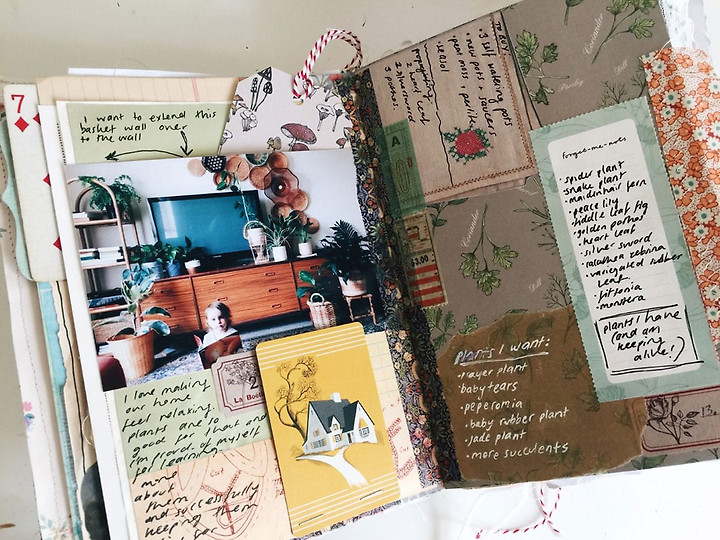 7
I want to extend this
basket wall over
to the wall
I love making
our home
feel relaxing.
plants are so
good for that and
I'm proud of myself
for learning
more
about
them
and successfully
keeping them
La
TO BUY:
• 3 self watering pots
• new pots + saucers
• peat moss + perlite
• seasol
propagating
2 heart leafs
2 silversword
3 pothos
A
3.00
Coriander
Parsley
Dill
Coriander
Dill
forget-me-nots
• spider plant
• snake plant
• maidenhair fern
• peace lily
• fiddle leaf fig
• golden pothos
• heart leaf
• silver sword
• calathea zebrina
• variegated rubber
leaf
• fittonia
• monstera
plants I have
(and am
keeping
alive!)
plants I want:
• prayer plant
• baby tears
• peperomia
• baby rubber plant
• jade plant
• more succulents
13